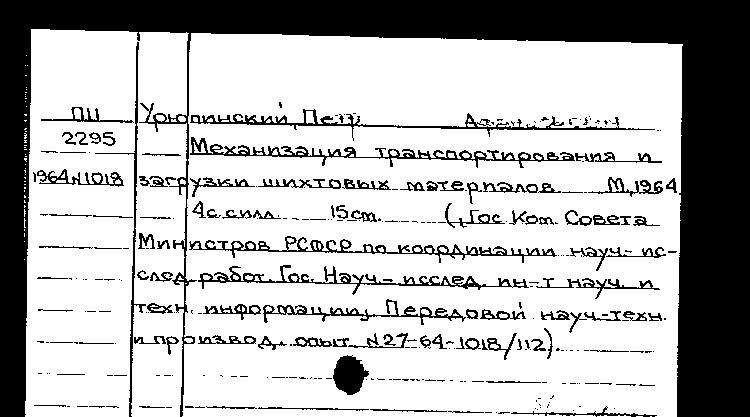 ПЦ Урюпинский, Петр Афанасьевич
2295 Механизация транспортирования и
1964 N1018 загрузки шихтовых материалов М, 1964
4с. с илл. 15 cm. (, Гос Ком. Совета
Министров РСФСР по координации науч.- ис-
след. работ. Гос. Науч-исслед. ин-т науч. и
техн. информации, Передовой науч.-техн.
и производ. опыт. N27-64-1018/112).